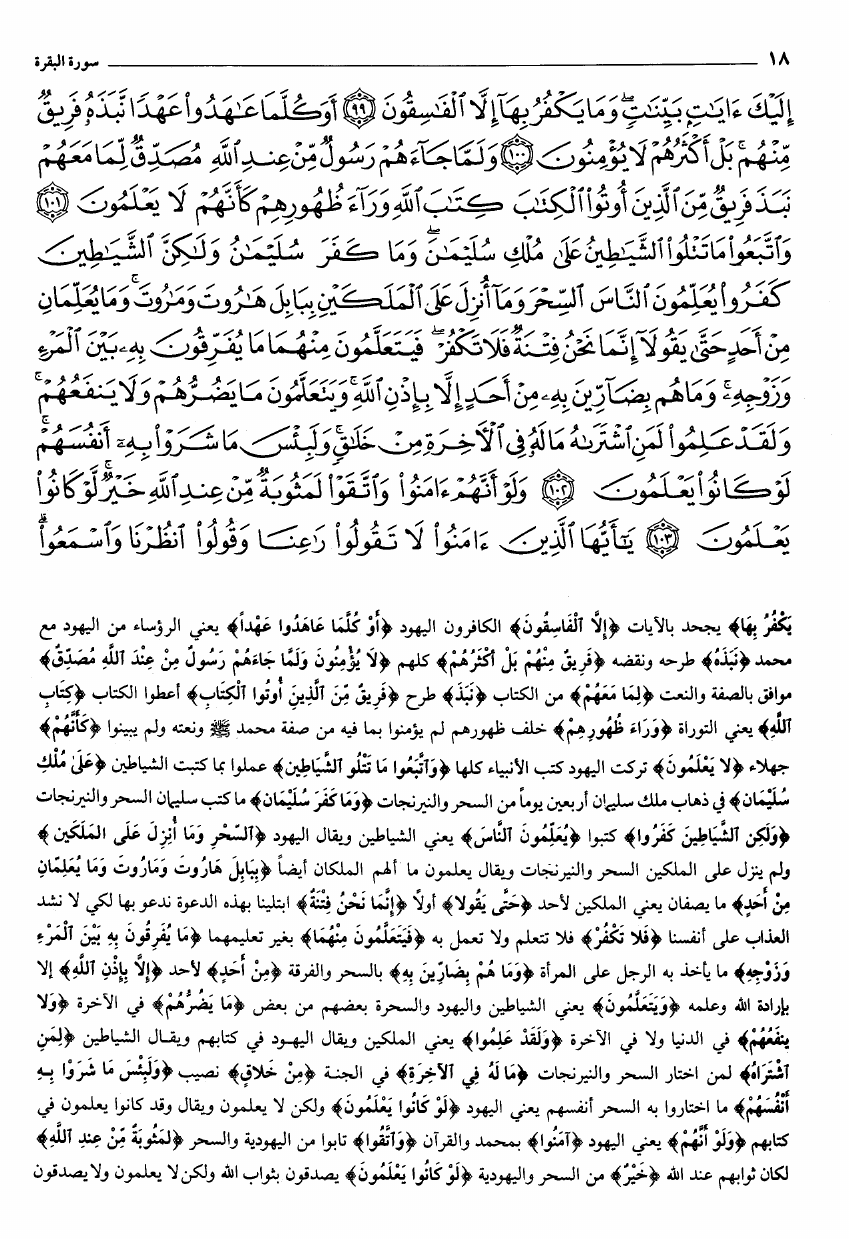 ١٨ سورة البقرة
إِلَيْكَ ءَايَٰتٍۭ بَيِّنَٰتٍۖ وَمَا يَكْفُرُ بِهَآ إِلَّا ٱلْفَٰسِقُونَ ۝٩٩ أَوَكُلَّمَا عَٰهَدُوا۟ عَهْدًا نَّبَذَهُۥ فَرِيقٌ
مِّنْهُمۚ بَلْ أَكْثَرُهُمْ لَا يُؤْمِنُونَ ۝١٠٠ وَلَمَّا جَآءَهُمْ رَسُولٌ مِّنْ عِندِ ٱللَّهِ مُصَدِّقٌ لِّمَا مَعَهُمْ
نَبَذَ فَرِيقٌ مِّنَ ٱلَّذِينَ أُوتُوا۟ ٱلْكِتَٰبَ كِتَٰبَ ٱللَّهِ وَرَآءَ ظُهُورِهِمْ كَأَنَّهُمْ لَا يَعْلَمُونَ ۝١٠١
وَٱتَّبَعُوا۟ مَا تَتْلُوا۟ ٱلشَّيَٰطِينُ عَلَىٰ مُلْكِ سُلَيْمَٰنَۖ وَمَا كَفَرَ سُلَيْمَٰنُ وَلَٰكِنَّ ٱلشَّيَٰطِينَ
كَفَرُوا۟ يُعَلِّمُونَ ٱلنَّاسَ ٱلسِّحْرَ وَمَآ أُنزِلَ عَلَى ٱلْمَلَكَيْنِ بِبَابِلَ هَٰرُوتَ وَمَٰرُوتَۚ وَمَا يُعَلِّمَانِ
مِنْ أَحَدٍ حَتَّىٰ يَقُولَآ إِنَّمَا نَحْنُ فِتْنَةٌ فَلَا تَكْفُرْۖ فَيَتَعَلَّمُونَ مِنْهُمَا مَا يُفَرِّقُونَ بِهِۦ بَيْنَ ٱلْمَرْءِ
وَزَوْجِهِۦۚ وَمَا هُم بِضَآرِّينَ بِهِۦ مِنْ أَحَدٍ إِلَّا بِإِذْنِ ٱللَّهِۚ وَيَتَعَلَّمُونَ مَا يَضُرُّهُمْ وَلَا يَنفَعُهُمْۚ
وَلَقَدْ عَلِمُوا۟ لَمَنِ ٱشْتَرَىٰهُ مَا لَهُۥ فِى ٱلْءَاخِرَةِ مِنْ خَلَٰقٍۚ وَلَبِئْسَ مَا شَرَوْا۟ بِهِۦٓ أَنفُسَهُمْۚ
لَوْ كَانُوا۟ يَعْلَمُونَ ۝١٠٢ وَلَوْ أَنَّهُمْ ءَامَنُوا۟ وَٱتَّقَوْا۟ لَمَثُوبَةٌ مِّنْ عِندِ ٱللَّهِ خَيْرٌۖ لَّوْ كَانُوا۟
يَعْلَمُونَ ۝١٠٣ يَٰٓأَيُّهَا ٱلَّذِينَ ءَامَنُوا۟ لَا تَقُولُوا۟ رَٰعِنَا وَقُولُوا۟ ٱنظُرْنَا وَٱسْمَعُوا۟ۗ
يَكْفُرُ بِهَا﴾ يجحد بالآيات ﴿إِلَّا ٱلْفَاسِقُونَ﴾ الكافرون اليهود ﴿أَوْ كُلَّمَا عَاهَدُوا عَهْداً﴾ يعني الرؤساء من اليهود مع
محمد ﴿نَبَذَهُ﴾ طرحه ونقضه ﴿فَرِيقٌ مِنْهُمْ بَلْ أَكْثَرُهُمْ﴾ كلهم ﴿لَا يُؤْمِنُونَ وَلَمَّا جَاءَهُمْ رَسُولٌ مِنْ عِنْدَ ٱللَّهِ مُصَدِّقٌ﴾
موافق بالصفة والنعت ﴿لِمَا مَعَهُمْ﴾ من الكتاب ﴿نَبَذَ﴾ طرح ﴿فَرِيقٌ مِّنَ ٱلَّذِينَ أُوتُوا ٱلْكِتَابِ﴾ أعطوا الكتاب ﴿كِتَابِ
ٱللَّهِ﴾ يعني التوراة ﴿وَرَاءَ ظُهُورِهِمْ﴾ خلف ظهورهم لم يؤمنوا بما فيه من صفة محمد ﷺ ونعته ولم يبينوا ﴿كَأَنَّهُمْ﴾
جهلاء ﴿لا يَعْلَمُونَ﴾ تركت اليهود كتب الأنبياء كلها ﴿وَٱتَّبَعُوا مَا تَتْلُو الشَّيَاطِين﴾ عملوا بما كتبت الشياطين ﴿عَلَىٰ مُلْكِ
سُلَيْمَان﴾ في ذهاب ملك سليمان أربعين يوماً من السحر والنيرنجات ﴿وَمَا كَفَرَ سُلَيْمَان﴾ ما كتب سليمان السحر والنيرنجات
﴿وَلَكِن ٱلشَّيَاطِينَ كَفَرُوا﴾ كتبوا ﴿يُعَلِّمُونَ ٱلنَّاسَ﴾ يعني الشياطين ويقال اليهود ﴿ٱلسِّحْرِ وَمَا أُنْزِلَ عَلَى المَلَكَين﴾
ولم ينزل على الملكين السحر والنيرنجات ويقال يعلمون ما ألهم الملكان أيضاً ﴿بِبَابِلَ هَارُوتَ وَمَارُوتَ وَمَا يُعَلِّمَانِ
مِنْ أَحَدٍ﴾ ما يصفان يعني الملكين لأحد ﴿حَتَّى يَقُولا﴾ أولاً ﴿إِنَّمَا نَحْنُ فِتْنَةٌ﴾ ابتلينا بهذه الدعوة ندعو بها لكي لا نشد
العذاب على أنفسنا ﴿فَلا تَكْفُرْ﴾ فلا تتعلم ولا تعمل به ﴿فَيَتَعَلَّمُونَ مِنْهُمَا﴾ بغير تعليمهما ﴿مَا يُفَرِقُونَ بِهِ بَيْنَ ٱلْمَرْءِ
وَزَوْجِهِ﴾ ما يأخذ به الرجل على المرأة ﴿وَمَا هُمْ بِضَارِّينَ بِهِ﴾ بالسحر والفرقة ﴿مِنْ أَحَدٍ﴾ لأحد ﴿إِلَّا بِإِذْنِ ٱللَّهِ﴾ إلا
بإرادة الله وعلمه ﴿وَيَتَعَلَّمُونَ﴾ يعني الشياطين واليهود والسحرة بعضهم من بعض ﴿مَا يَضُرُّهُمْ﴾ في الآخرة ﴿وَلا
يَنفَعُهُمْ﴾ في الدنيا ولا في الآخرة ﴿وَلَقَدْ عَلِمُوا﴾ يعني الملكين ويقال اليهود في كتابهم ويقال الشياطين ﴿لَمَنِ
ٱشْتَرَاهُ﴾ لمن اختار السحر والنيرنجات ﴿مَا لَهُ فِي ٱلآخِرَةِ﴾ في الجنة ﴿مِنْ خَلاقٍ﴾ نصيب ﴿وَلَبِئْسَ مَا شَرَوْا بِهِ
أَنْفُسَهُمْ﴾ ما اختاروا به السحر أنفسهم يعني اليهود ﴿لَوْ كَانُوا يَعْلَمُونَ﴾ ولكن لا يعلمون ويقال وقد كانوا يعلمون في
كتابهم ﴿وَلَوْ أَنَّهُمْ﴾ يعني اليهود ﴿آمَنُوا﴾ بمحمد والقرآن ﴿وَٱتَّقُوا﴾ تابوا من اليهودية والسحر ﴿لَمَثُوبَةٌ مِّنْ عِندِ ٱللَّهِ﴾
لكان ثوابهم عند الله ﴿خَيْرٌ﴾ من السحر واليهودية ﴿لَوْ كَانُوا يَعْلَمُونَ﴾ يصدقون بثواب الله ولكن لا يعلمون ولا يصدقون